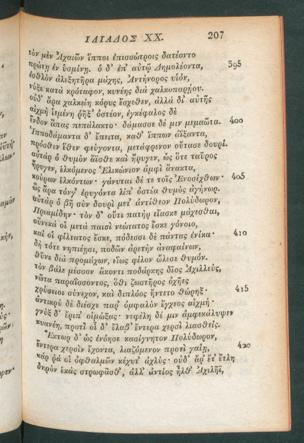 ΙΛΙΑΔΟΣ XX. 207
τὸν μὲν Ἀχαιῶν ἵπποι ἐπισσώτροις δατέοντο
πρώτῃ ἐν ὑσμίνῃ. ὁ δ' ἐπ' αὐτῷ Δημολέοντα, 395
ἐσθλὸν ἀλεξητῆρα μάχης, Ἀντήνορος υἱόν,
νύξε κατὰ κρόταφον, κυνέης διὰ χαλκοπαρῄου.
οὐδ' ἄρα χαλκείη κόρυς ἔσχεθεν, ἀλλὰ δι' αὐτῆς
αἰχμὴ ἱεμένη ῥῆξ' ὀστέον, ἐγκέφαλος δὲ
ἔνδον ἅπας πεπάλακτο· δάμασσε δέ μιν μεμαῶτα. 400
Ἱπποδάμαντα δ' ἔπειτα, καθ' ἵππων ἀΐξαντα,
πρόσθεν ἕθεν φεύγοντα, μετάφρενον οὔτασε δουρί.
αὐτὰρ ὁ θυμὸν ἄϊσθε καὶ ἤρυγεν, ὡς ὅτε ταῦρος
ἤρυγεν, ἑλκόμενος Ἑλικώνιον ἀμφὶ ἄνακτα,
κούρων ἑλκόντων· γάνυται δέ τε τοῖς Ἐνοσίχθων· 405
ὣς ἄρα τόνγ' ἐρυγόντα λίπ' ὀστέα θυμὸς ἀγήνωρ.
αὐτὰρ ὁ βῆ σὺν δουρὶ μετ' ἀντίθεον Πολύδωρον,
Πριαμίδην· τὸν δ' οὔτι πατὴρ εἴασκε μάχεσθαι,
οὕνεκά οἱ μετὰ παισὶ νεώτατος ἔσκε γόνοιο,
καί οἱ φίλτατος ἔσκε, πόδεσσι δὲ πάντας ἐνίκα· 410
δὴ τότε νηπιέῃσι, ποδῶν ἀρετὴν ἀναφαίνων,
θῦνε διὰ προμάχων, εἵως φίλον ὤλεσε θυμόν.
τὸν βάλε μέσσον ἄκοντι ποδάρκης δῖος Ἀχιλλεύς,
νῶτα παραΐσσοντος, ὅθι ζωστῆρος ὀχῆες
χρύσειοι σύνεχον, καὶ διπλόος ἤντετο θώρηξ·
ἀντικρὺ δὲ διέσχε παρ' ὀμφαλὸν ἔγχεος αἰχμή·
γνὺξ δ' ἔριπ' οἰμώξας· νεφέλη δέ μιν ἀμφεκάλυψεν
κυανέη, προτὶ οἷ δ' ἔλαβ' ἔντερα χερσὶ λιασθείς.
Ἕκτωρ δ' ὡς ἐνόησε κασίγνητον Πολύδωρον,
ἔντερα χερσὶν ἔχοντα, λιαζόμενον προτὶ γαίῃ, 420
κάρ ῥά οἱ ὀφθαλμῶν κέχυτ' ἀχλύς· οὐδ' ἄρ' ἔτ' ἔτλη
δηρὸν ἑκὰς στρωφᾶσθ', ἀλλ' ἀντίος ἦλθ' Ἀχιλῆϊ,